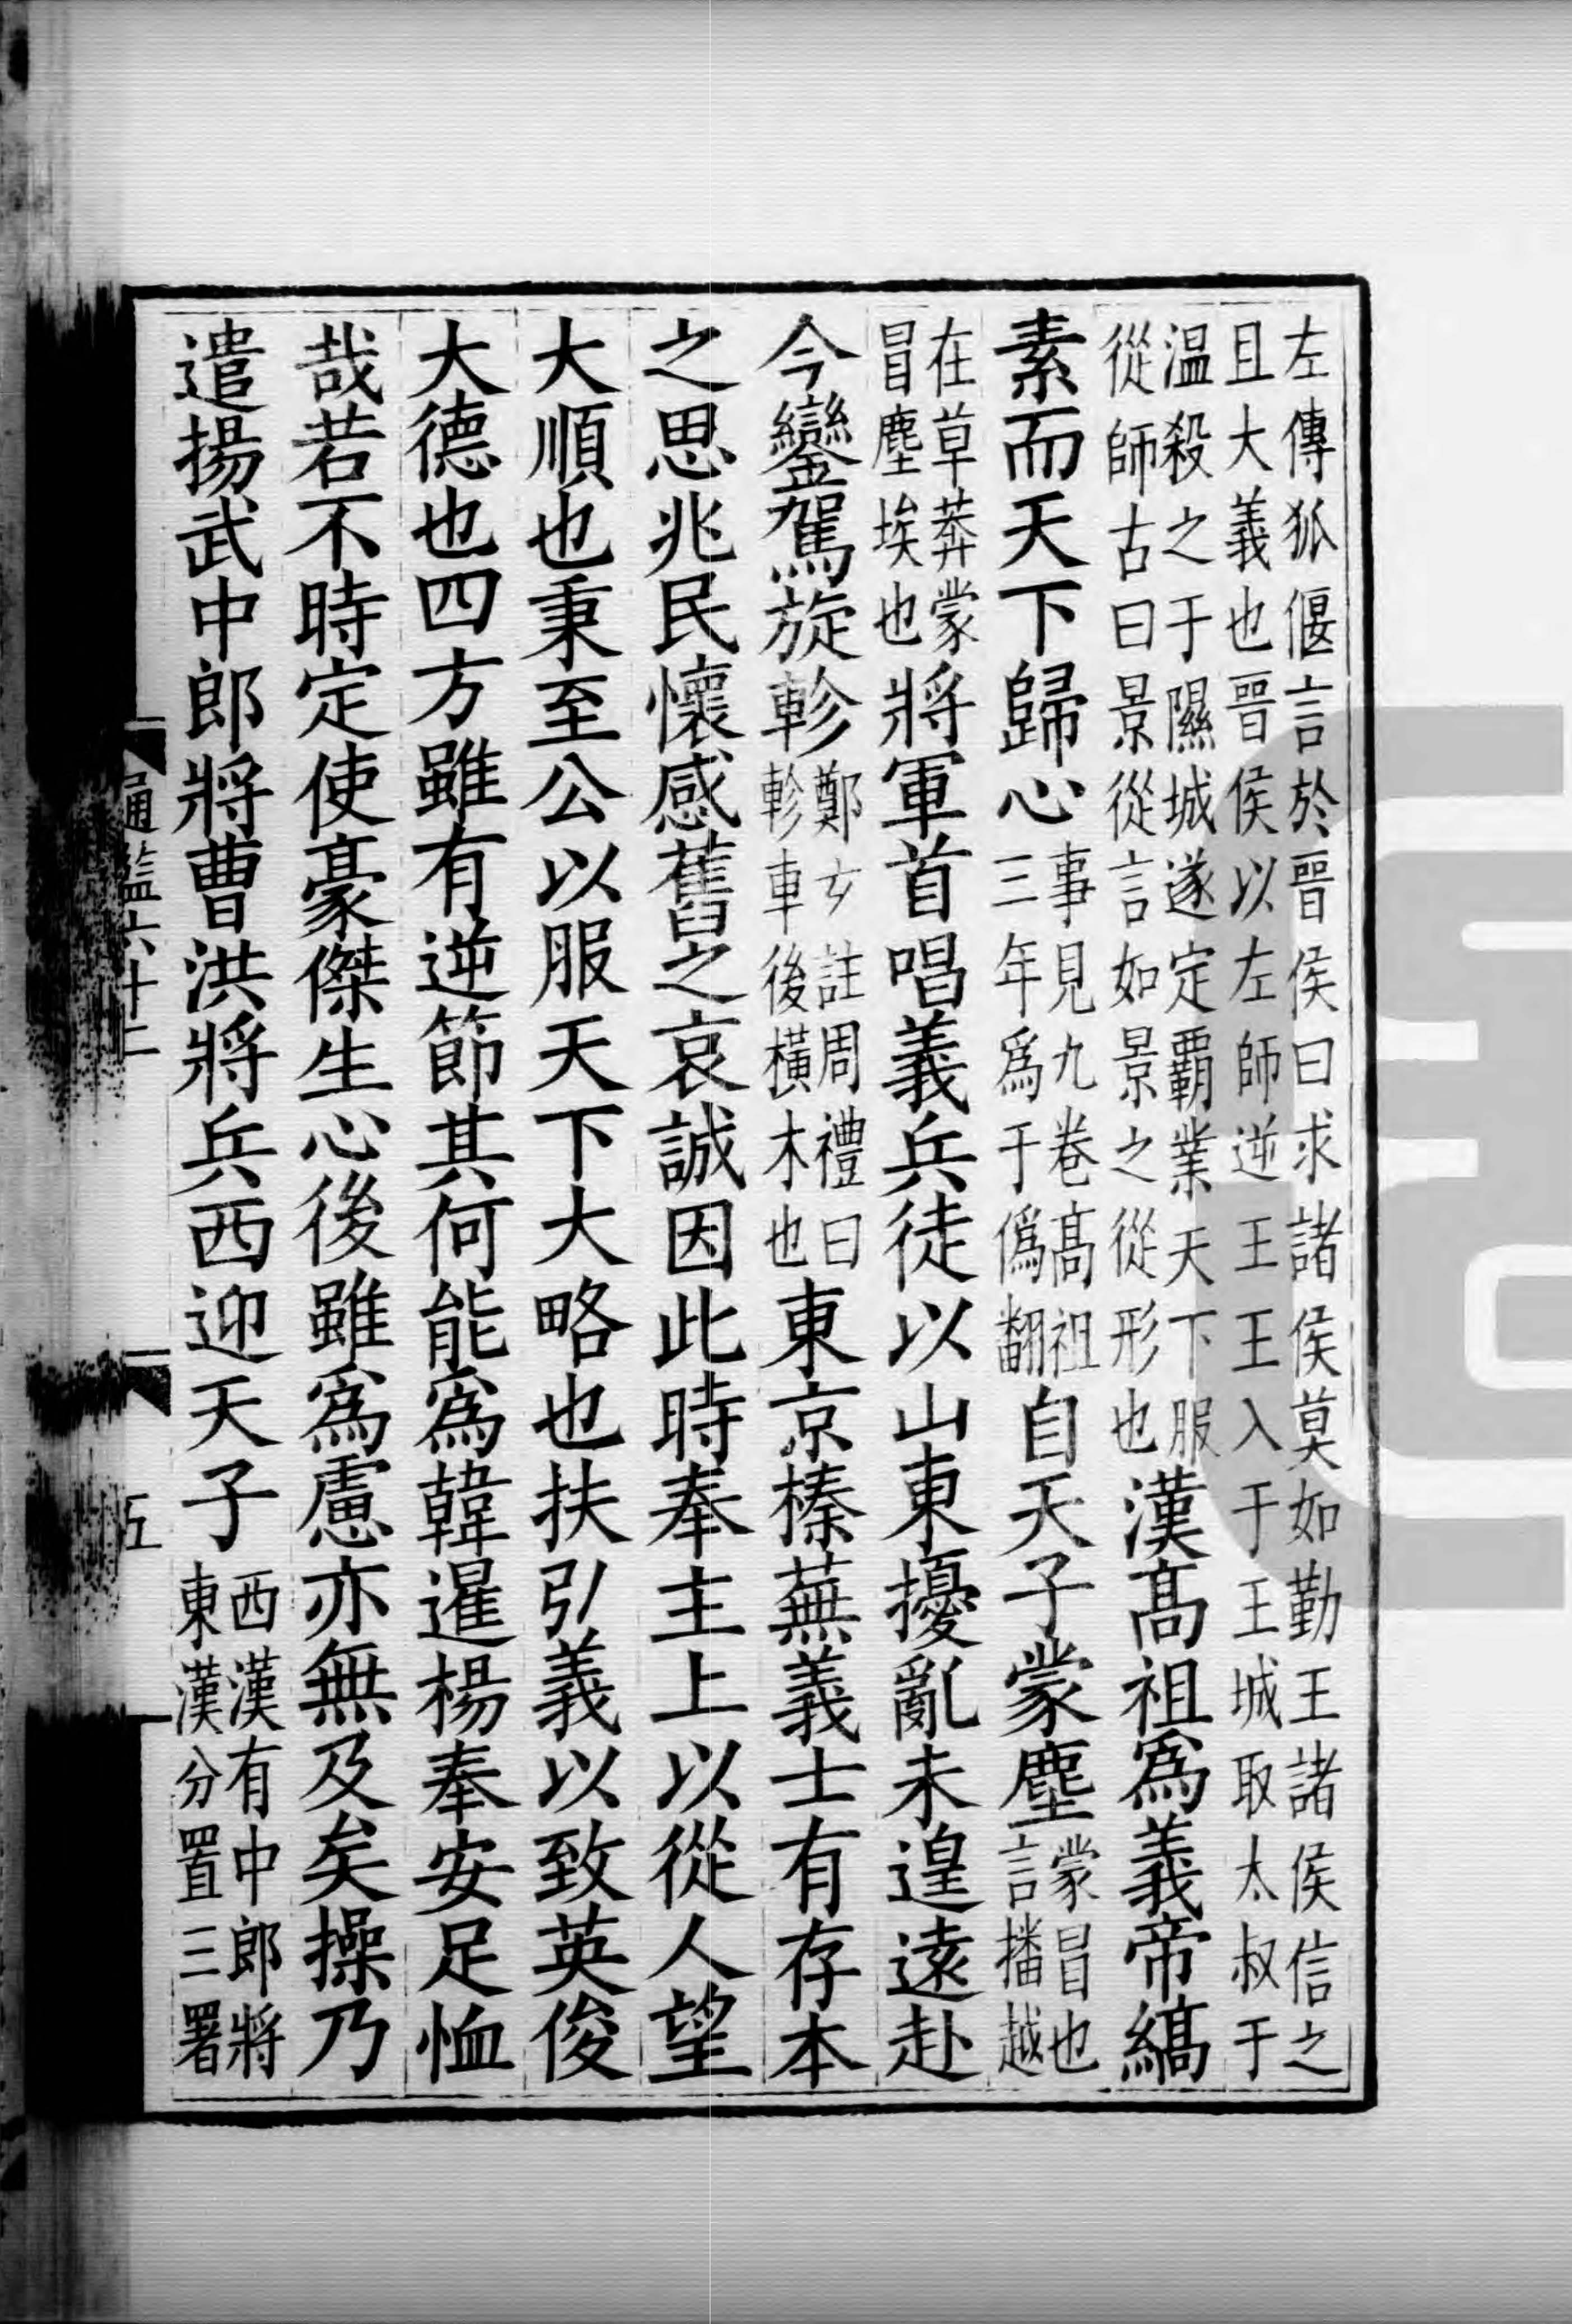 左傳狐偃言於晉侯曰求諸侯莫如勤王諸侯信之
且大義也晉侯以左師逆王王入于王城取太叔于
温殺之于隰城遂定覇業天下服
從師古曰景從言如景之從形也漢高祖爲義帝縞
素而天下歸心事見九卷高祖
三年爲于僞翻自天子蒙塵蒙冒也
言播越
在草莽蒙
冒塵埃也將軍首唱義兵徒以山東擾亂未遑遠赴
今鑾駕旋軫鄭玄註周禮曰
軫車後橫木也東京榛蕪義士有存本
之思兆民懷感舊之哀誠因此時奉主上以從人望
大順也秉至公以服天下大略也扶引義以致英俊
大德也四方雖有逆節其何能爲韓暹楊奉安足恤
哉若不時定使豪傑生心後雖爲慮亦無及矣操乃
遣揚武中郎將曹洪將兵西迎天子西漢有中郎將
東漢分置三署
通鑑六十二
五